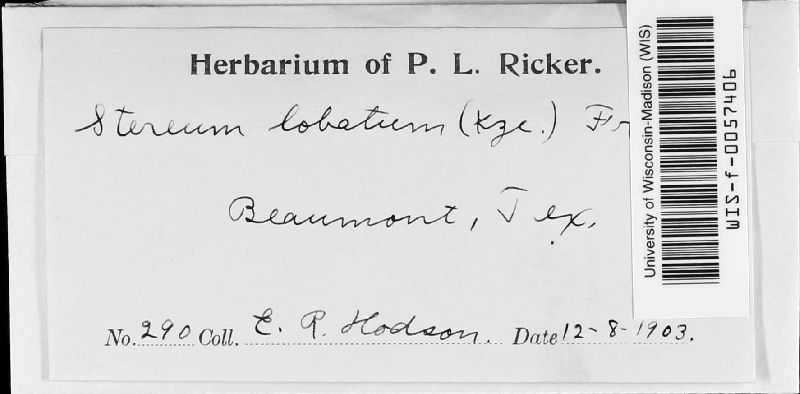 Herbarium of P. L. Ricker.
Stereum lobatum (Kze.) Fr
Beaumont, Tex.
No. 290 Coll. E. R. Hodson. Date 12-8-1903.
University of Wisconsin-Madison (WIS)
WIS-f-0057406